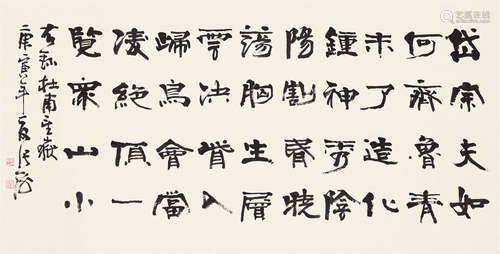 岱宗夫如
何齊魯青
未了造化
鍾神秀陰
陽割昏曉
蕩胸生層
雲決眥入
歸鳥會當
凌絕頂一
覽眾山小
右錄杜甫望嶽
庚寅年夏